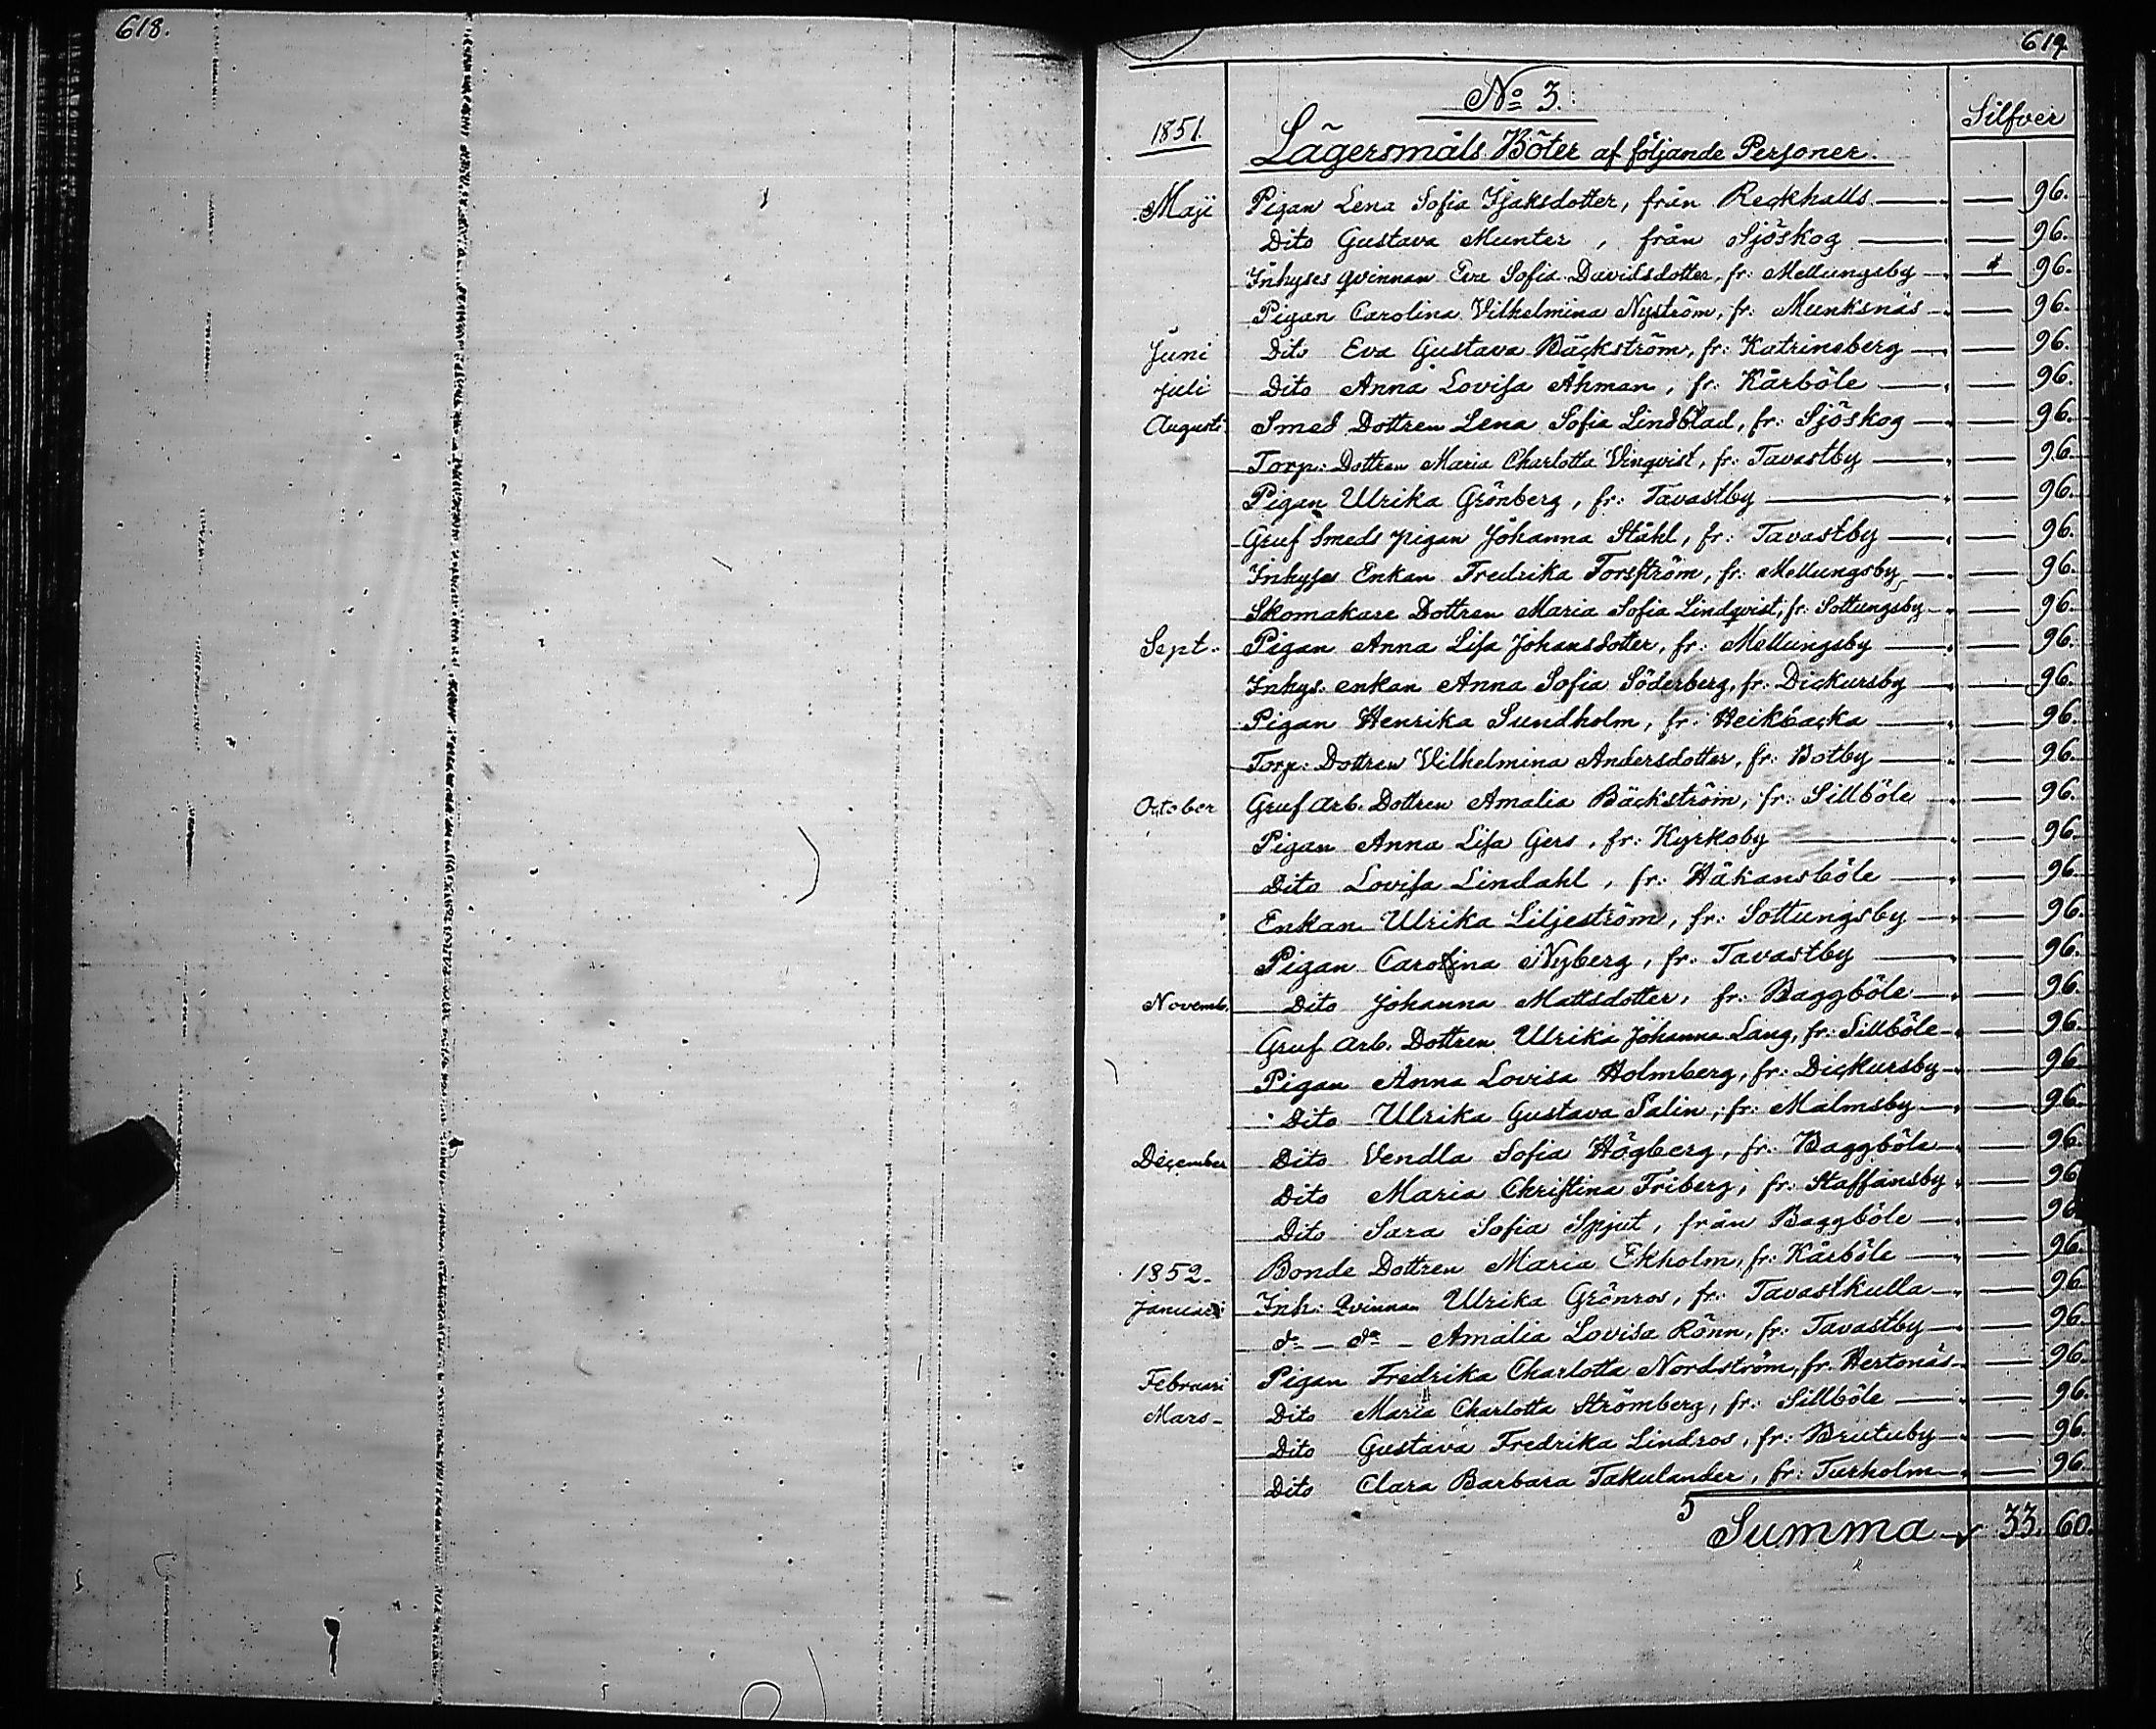 618.
619.
No 3.
Silfver
1851.
Lägersmåls Böter af följande Personer.
Maji Pigan Lena Sofia Isaksdotter, från Reckhalls — — 96.
Dito Gustava Munter, från Sjöskog — — 96.
Inhyses qvinnan Eva Sofia Davidsdotter, fr: Mellungsby — — 96.
Pigan Carolina Vilhelmina Nyström, fr: Munksnäs — — 96.
Juni Dito Eva Gustava Bäckström, fr: Katrineberg — — 96.
Juli Dito Anna Lovisa Åhman, fr: Kårböle — — 96.
Augusti Smed Dottren Lena Sofia Lindblad, fr: Sjöskog — — 96.
Torp: Dottren Maria Charlotta Vinqvist, fr: Tavastby — — 96.
Pigan Ulrika Grönberg, fr: Tavastby — — 96.
Gruf Smeds pigan Johanna Ståhl, fr: Tavastby — — 96.
Inhyses Enkan Fredrika Forsström, fr: Mellungsby — — 96.
Skomakare Dottren Maria Sofia Lindqvist, fr: Sottungsby — — 96.
Sept. Pigan Anna Lisa Johansdotter, fr: Mellungsby — — 96.
Inhys. enkan Anna Sofia Söderberg, fr: Dickursby — — 96.
Pigan Henrika Sundholm, fr: Heikbacka — — 96.
Torp: Dottren Vilhelmina Andersdotter, fr: Botby — — 96.
October Gruf Arb. Dottren Amalia Bäckström, fr: Sillböle — — 96.
Pigan Anna Lisa Gers, fr: Kyrkoby — — 96.
Dito Lovisa Lindahl, fr: Håkansböle — — 96.
Enkan Ulrika Liljeström, fr: Sottungsby — — 96.
Pigan Carolina Nyberg, fr: Tavastby — — 96.
Novemb. Dito Johanna Mattsdotter, fr: Baggböle — — 96.
Gruf Arb. Dottren Ulrika Johanna Lang, fr: Sillböle — — 96.
Pigan Anna Lovisa Holmberg, fr: Dickursby — — 96.
Dito Ulrika Gustava Salin, fr: Malmsby — — 96.
December Dito Vendla Sofia Högberg, fr: Baggböle — — 96.
Dito Maria Christina Friberg, fr: Staffansby — — 96.
Dito Sara Sofia Spjut, från Baggböle — — 96.
1852. Bonde Dottren Maria Ekholm, fr: Kårböle — — 96.
Januari Inh: Qvinnan Ulrika Grönros, fr: Tavastkulla — — 96.
do — do — Amalia Lovisa Rönn, fr: Tavastby — — 96.
Februari Pigan Fredrika Charlotta Nordström, fr. Hertonäs — — 96.
Mars Dito Maria Charlotta Strömberg, fr: Sillböle — — 96.
Dito Gustava Fredrika Lindros, fr: Brutuby — — 96.
Dito Clara Barbara Takulander, fr: Turholm — — 96.
Summa 33. 60.